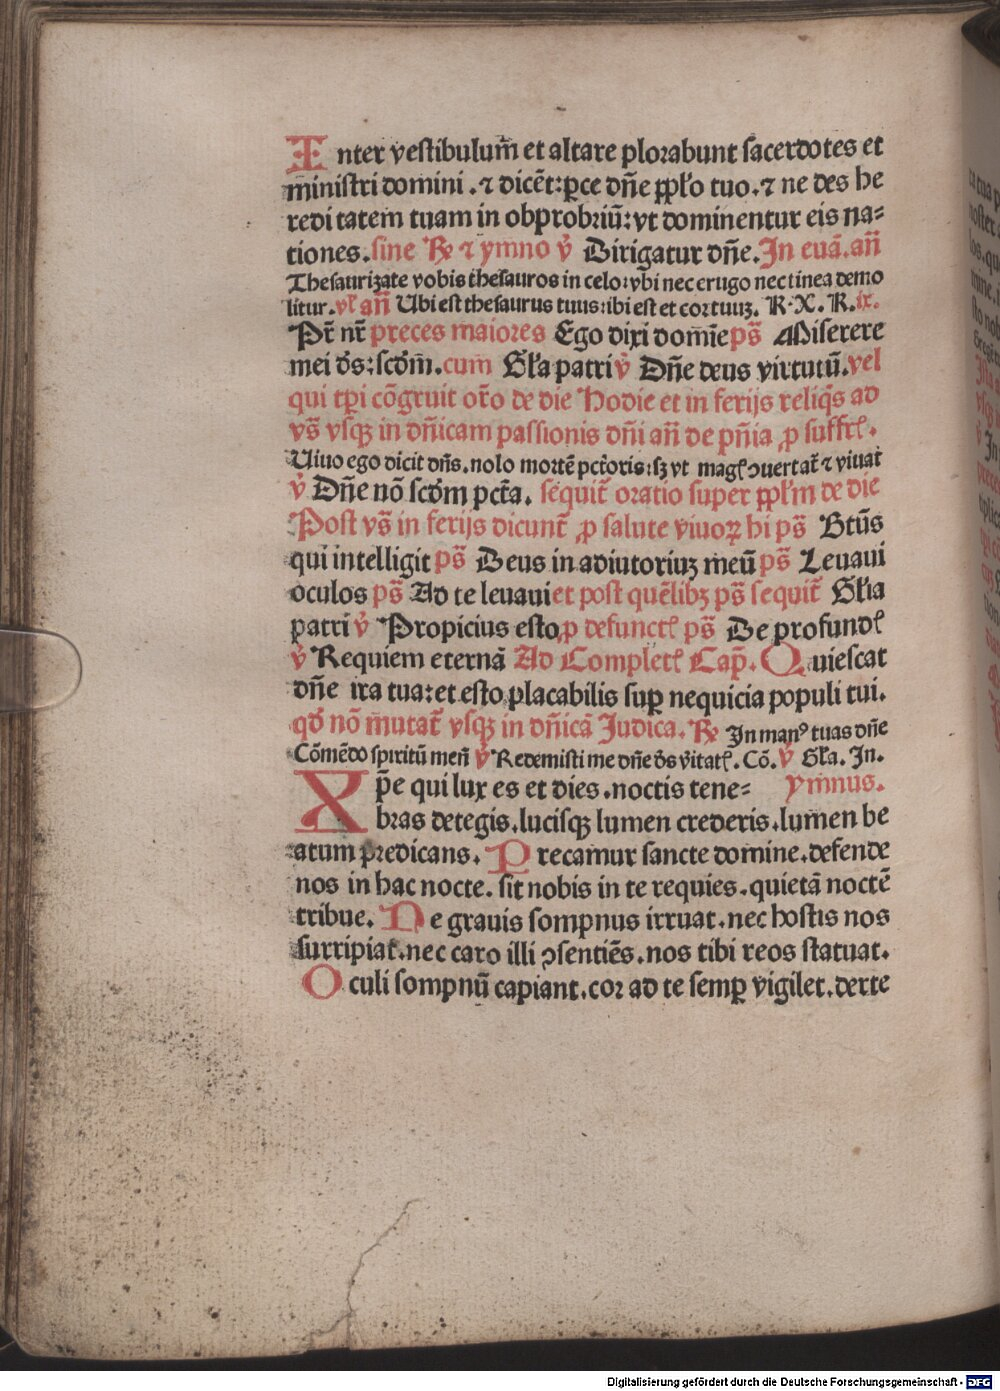 Inter vestibulum̄ et altare plorabunt sacerdotes et
ministri domini . ⁊ dicēt: ꝑce dn̄e ꝓpl'o tuo . ⁊ ne des he
redi tatem tuam in obprobriū: vt dominentur eis na⸗
tiones. sine ℞ ⁊ ymno v̄ Dirigatur dn̄e. In euā. an̄
Thesaurizate vobis thesauros in celo: vbi nec erugo nec tinea demo
litur. vl' an̄ Ubi est thesaurus tuus: ibi est et cor tuuꝫ. K. X. K. ix.
Pr̄ nr̄ preces maiores Ego dixi domīe ps̄ Miserere
mei ds̄: scd̄m. cum Gl'a patri v̄ Dn̄e deus virtutū. vel
qui tꝑi cōgruit or̄o de die Hodie et in ferijs reliq̄s ad
vs̄ vsqꝫ in dn̄icam passionis dn̄i an̄ de pn̄ia ꝓ suffrꝭ.
Uiuo ego dicit dn̄s. nolo mortē pctōris: sꝫ vt magꝭ ꝯuertat̄ ⁊ viuat
v̄ Dn̄e nō scd̄m pcta̅. sequit̄ oratio super ꝓpl'm de die
Post vs̄ in ferijs dicunt̄ ꝓ salute viuoꝝ hi ps̄ Btūs
qui intelligit ps̄ Deus in adiutoriuꝫ meū ps̄ Leuaui
oculos ps̄ Ad te leuaui et post quēlibꝫ ps̄ sequit̄ Gl'ia
patri v̄ Propicius esto, ꝓ defunctꝭ ps̄ De profundꝭ
v̄ Requiem eternā Ad Completꝭ Cap̄. Quiescat
dn̄e ira tua: et esto placabilis suꝑ nequicia populi tui.
qd̄ nō mutat̄ vsqꝫ in dn̄icā Judica. ℞ In manꝰ tuas dn̄e
Cōmēdo spiritū meū v̄ Redemisti me dn̄e ds̄ v̄itatꝭ. Cō. v̄ Gl'a. In.
Xp̄e qui lux es et dies. noctis tene⸗ ymnus.
bras detegis. lucisqꝫ lumen crederis. lumen be
atum predicans. Precamur sancte domine. defende
nos in hac nocte. sit nobis in te requies. quietā noctē
tribue. Ne grauis sompnus irruat. nec hostis nos
surripiat. nec caro illi ꝯsentiēs. nos tibi reos statuat.
Oculi sompnū capiant. cor ad te semꝑ vigilet. derte
Digitalisierung gefördert durch die Deutsche Forschungsgemeinschaft - DFG